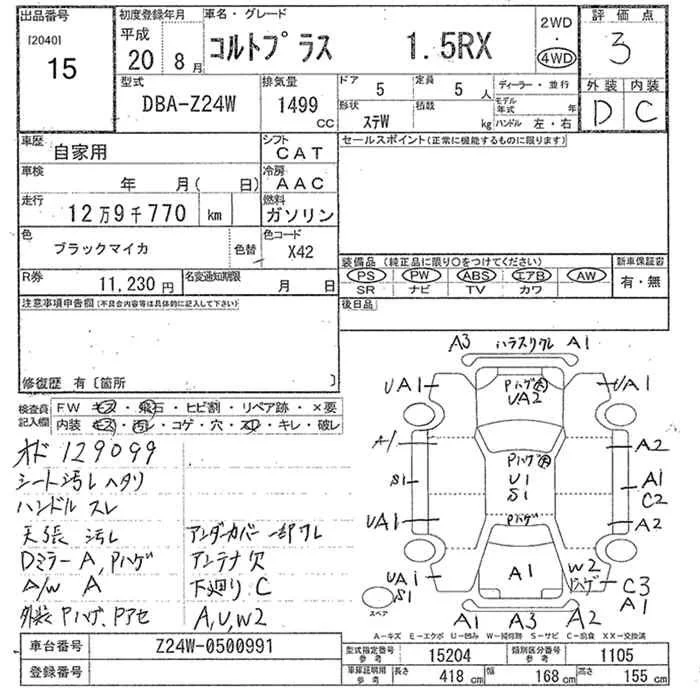 出品番号 初度登録年月 車名・グレード 2WD 評価点
[2040] 平成 ・ 3
15 20 8月 コルトプラス 1.5RX 4WD
外装 内装
型式 排気量 ドア 5 定員 5人 ディーラー・並行 D C
DBA-Z24W 1499 CC 形状 ステW 積載 kg モデル年式 年
ハンドル 左・右
車歴 自家用 シフト CAT セールスポイント(正常に機能するものに限ります)
車検 年 月( 日) 冷房 AAC
走行 12万9千770 km 燃料 ガソリン
色 ブラックマイカ 色替 色コード X42
装備品 (純正品に限り○をつけてください) 新車保証書
R券 11,230円 名変通知期限 月 日 PS PW ABS エアB AW 有・無
SR ナビ TV カワ
注意事項申告欄 (不具合内容等は具体的に記入して下さい) 後日品
修復歴 有〔箇所 〕
検査員記入欄 FW キズ・飛石・ヒビ割・リペア跡・×要
内装 キズ・汚れ・コゲ・穴・スレ・キレ・破レ
オド 129099
シート汚レ ヘタリ
ハンドル スレ
天張 汚レ アンダーカバー一部ワレ
Dミラー A, Pハゲ アンテナ欠
A/W A 下廻り C
外装 Pハゲ、Pアセ A,U,W2
A3 ハラスリワレ A1
UA1 Pハゲ UA2 UA1
A1 A2
Pハゲ
S1 U1 A1
S1 C2
UA1 Pハゲ A2
UA1 A1 W2 C3
S1 Pハゲ A1
スペア
A1 A3 A2
A-キズ E-エクボ U-凹み W-補修跡 S-サビ C-腐食 XX-交換済
車台番号 Z24W-0500991 型式指定番号 参考 15204 類別区分番号 参考 1105
登録番号 車庫証明用 参考 長さ 418cm 幅 168cm 高さ 155cm